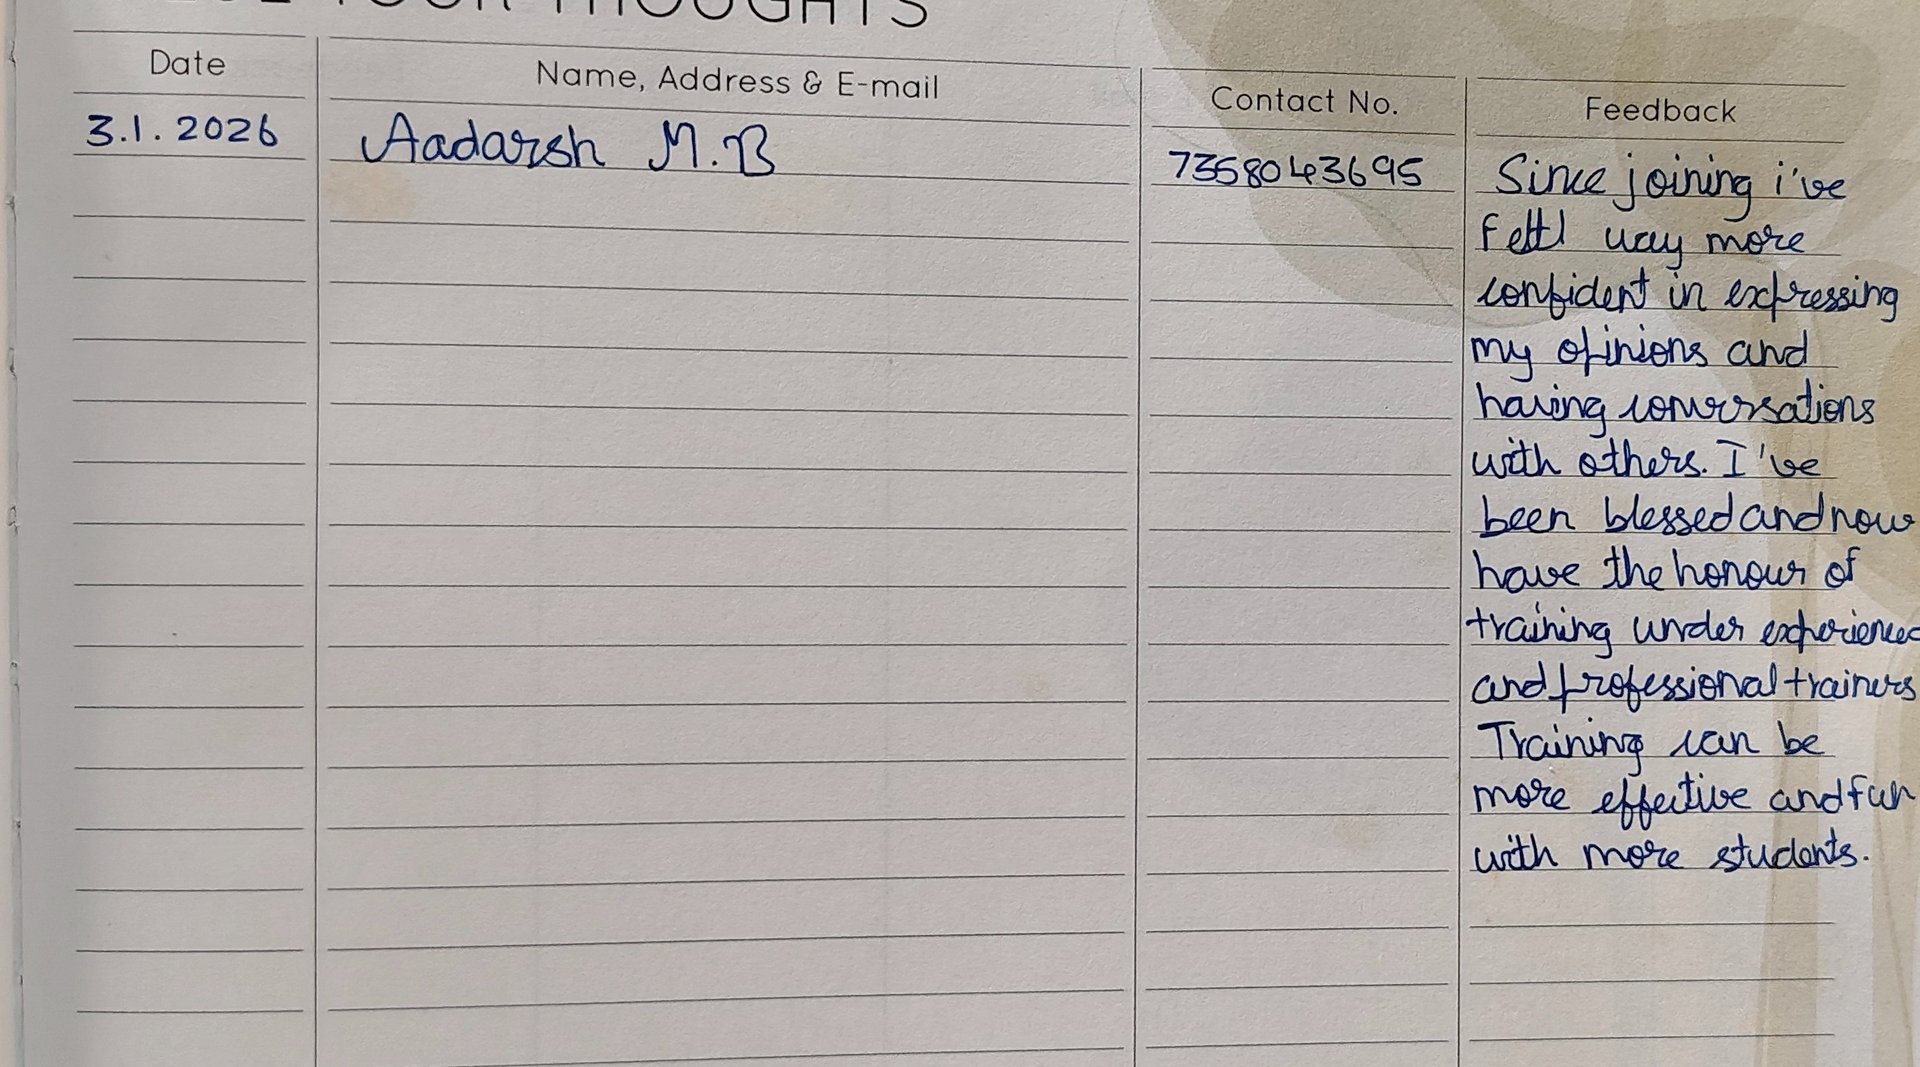 YOUR THOUGHTS
Date
Name, Address & E-mail
Contact No.
Feedback
3.1.2026
Aadarsh M.B
7358043695
Since joining i've
felt way more
confident in expressing
my opinions and
having conversations
with others. I've
been blessed and now
have the honour of
training under experienced
and professional trainers
Training can be
more effective and fun
with more students.